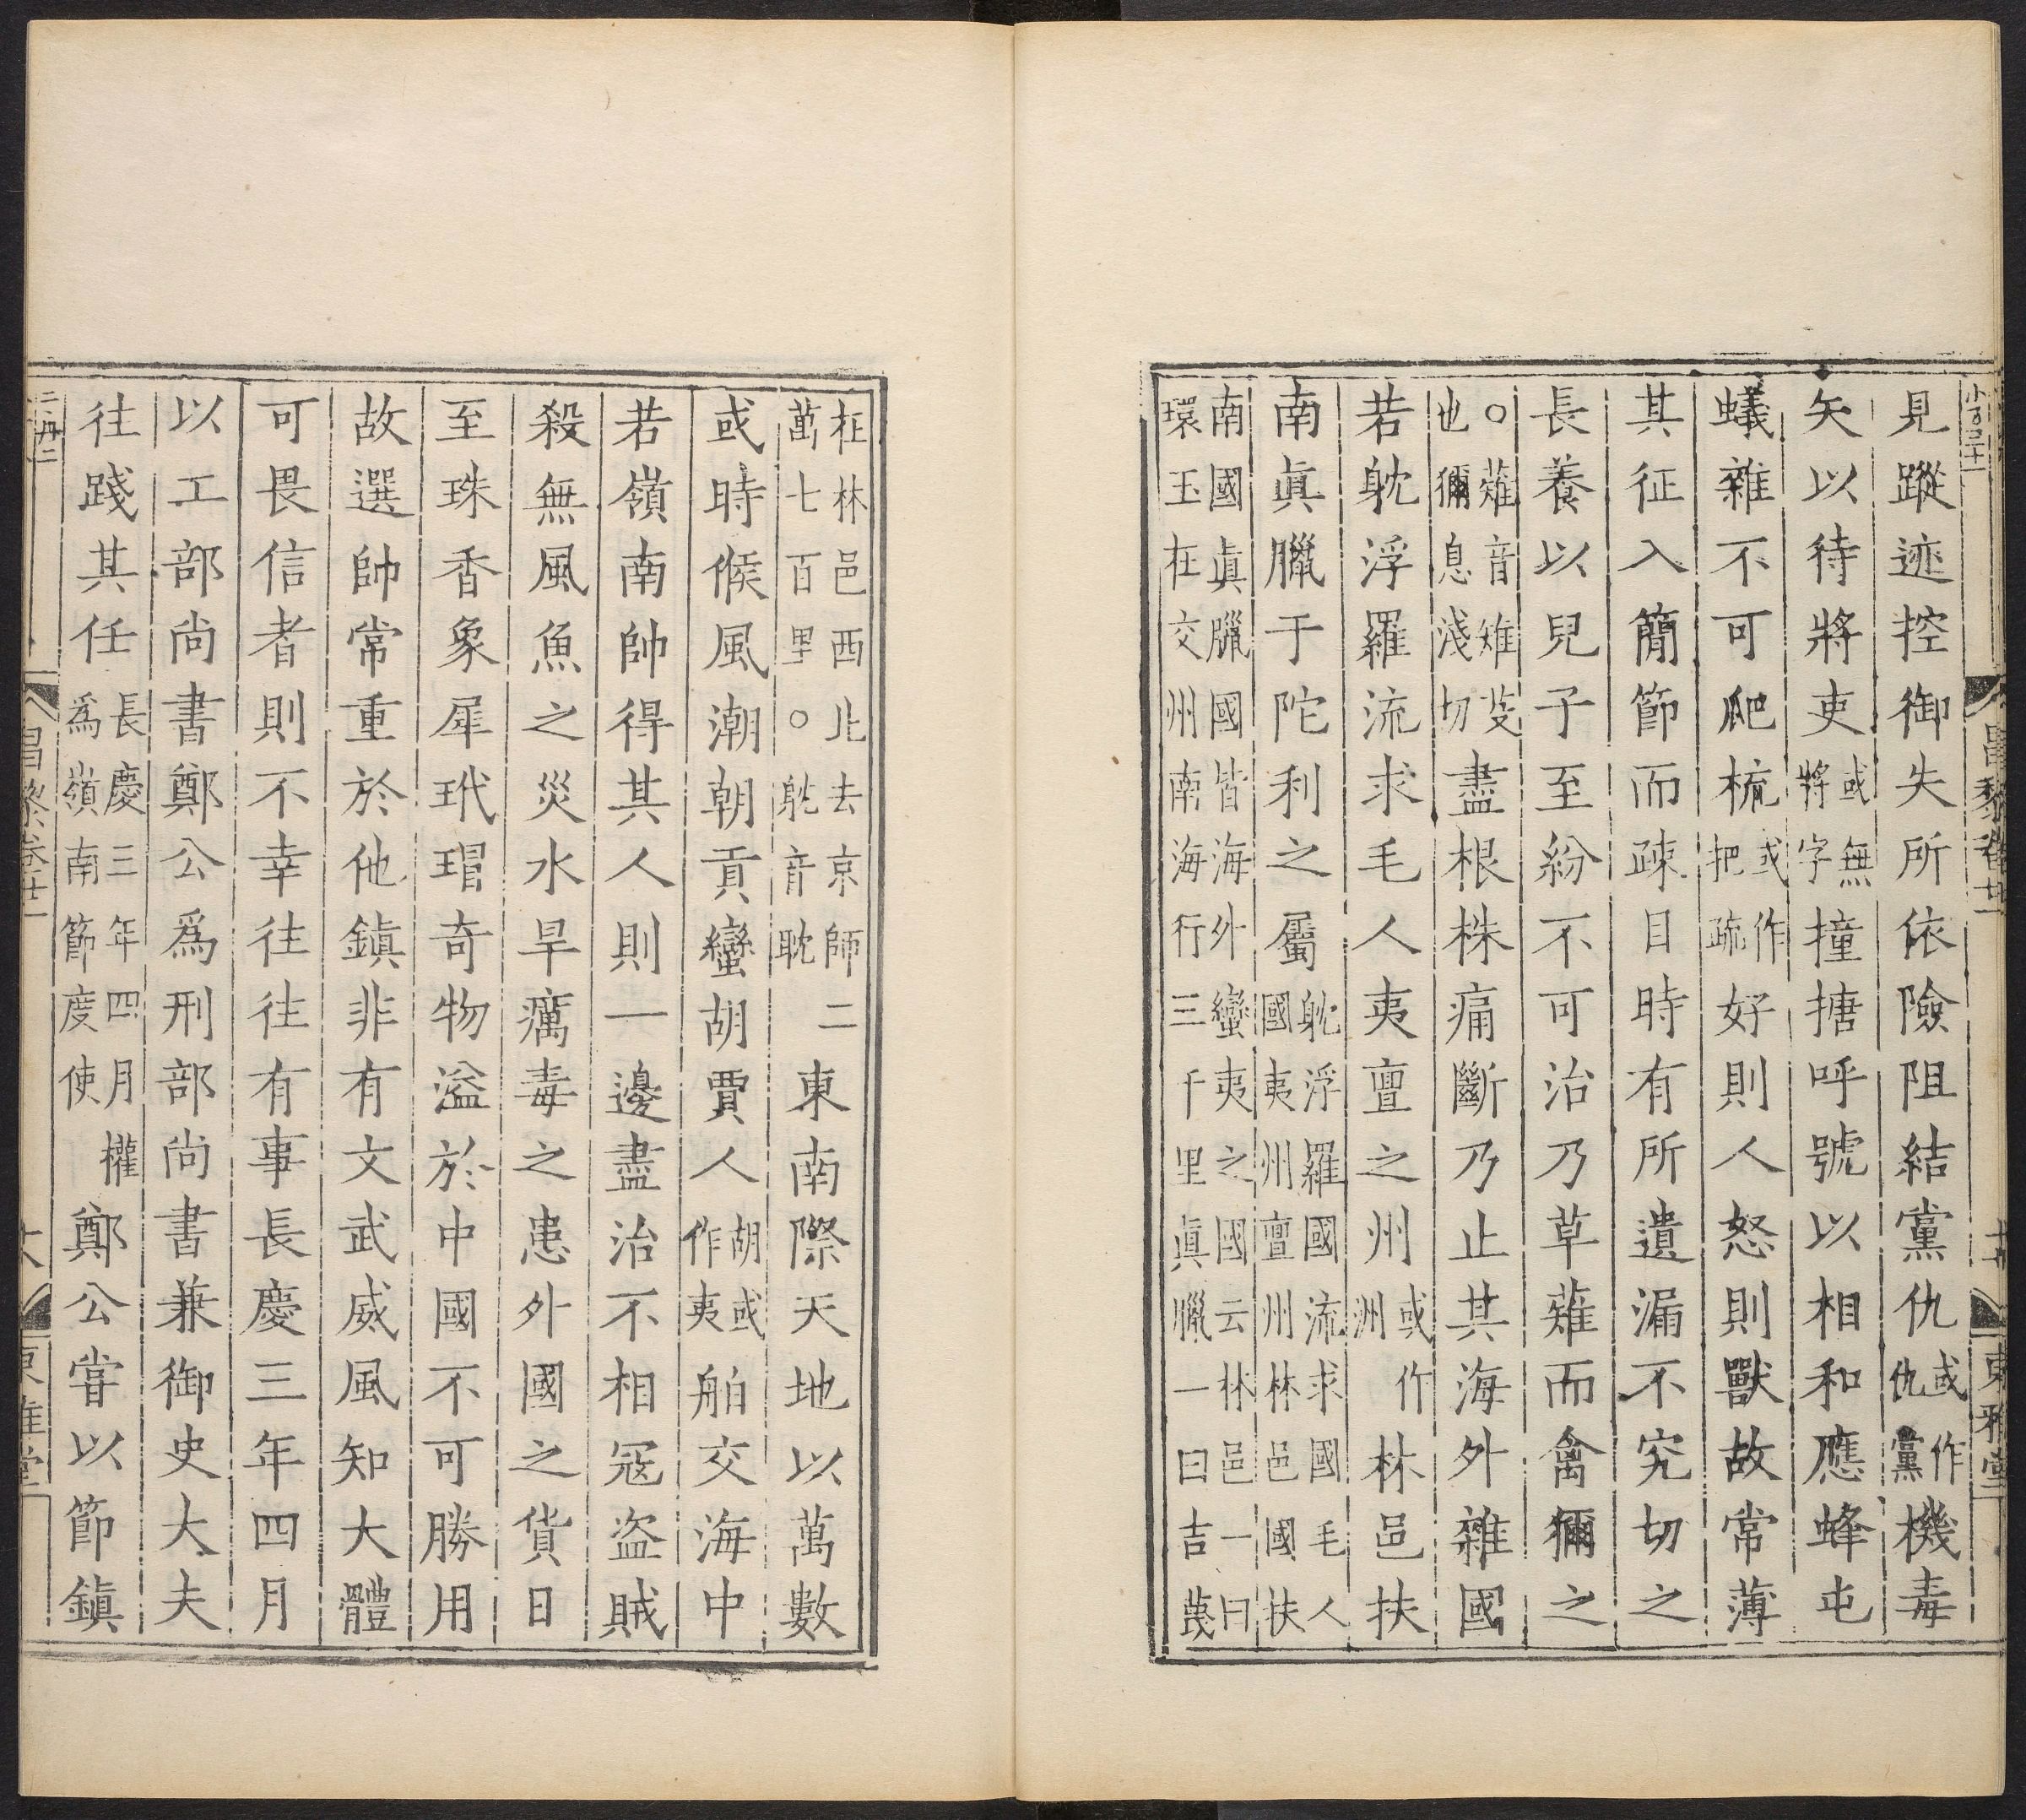 見蹤迹控御失所依險阻結黨仇或作仇黨機毒
矢以待將吏或無將字撞搪呼號以相和應蜂屯
蟻雜不可爬梳或作把疏好則人怒則獸故常薄
其征入簡節而疎目時有所遺漏不究切之
長養以兒子至紛不可治乃草薙而禽獮之
○薙音雉芟也獮息淺切盡根株痛斷乃止其海外雜國
若躭浮羅流求毛人夷亶之州或作洲林邑扶
南眞臘于陀利之屬躭浮羅國流求國毛人國夷州亶州林邑國扶
南國眞臘國皆海外蠻夷之國云林邑一曰環玉在交州南海行三千里眞臘一曰吉蔑
在林邑西北去京師二萬七百里○躭音耽東南際天地以萬數
或時候風潮朝貢蠻胡賈人胡或作夷舶交海中
若嶺南帥得其人則一邊盡治不相寇盜賊
殺無風魚之災水旱癘毒之患外國之貨日
至珠香象犀玳瑁奇物溢於中國不可勝用
故選帥常重於他鎮非有文武威風知大體
可畏信者則不幸往往有事長慶三年四月
以工部尚書鄭公爲刑部尚書兼御史大夫
往踐其任長慶三年四月權爲嶺南節度使鄭公嘗以節鎮
昌黎卷廿一
東雅堂